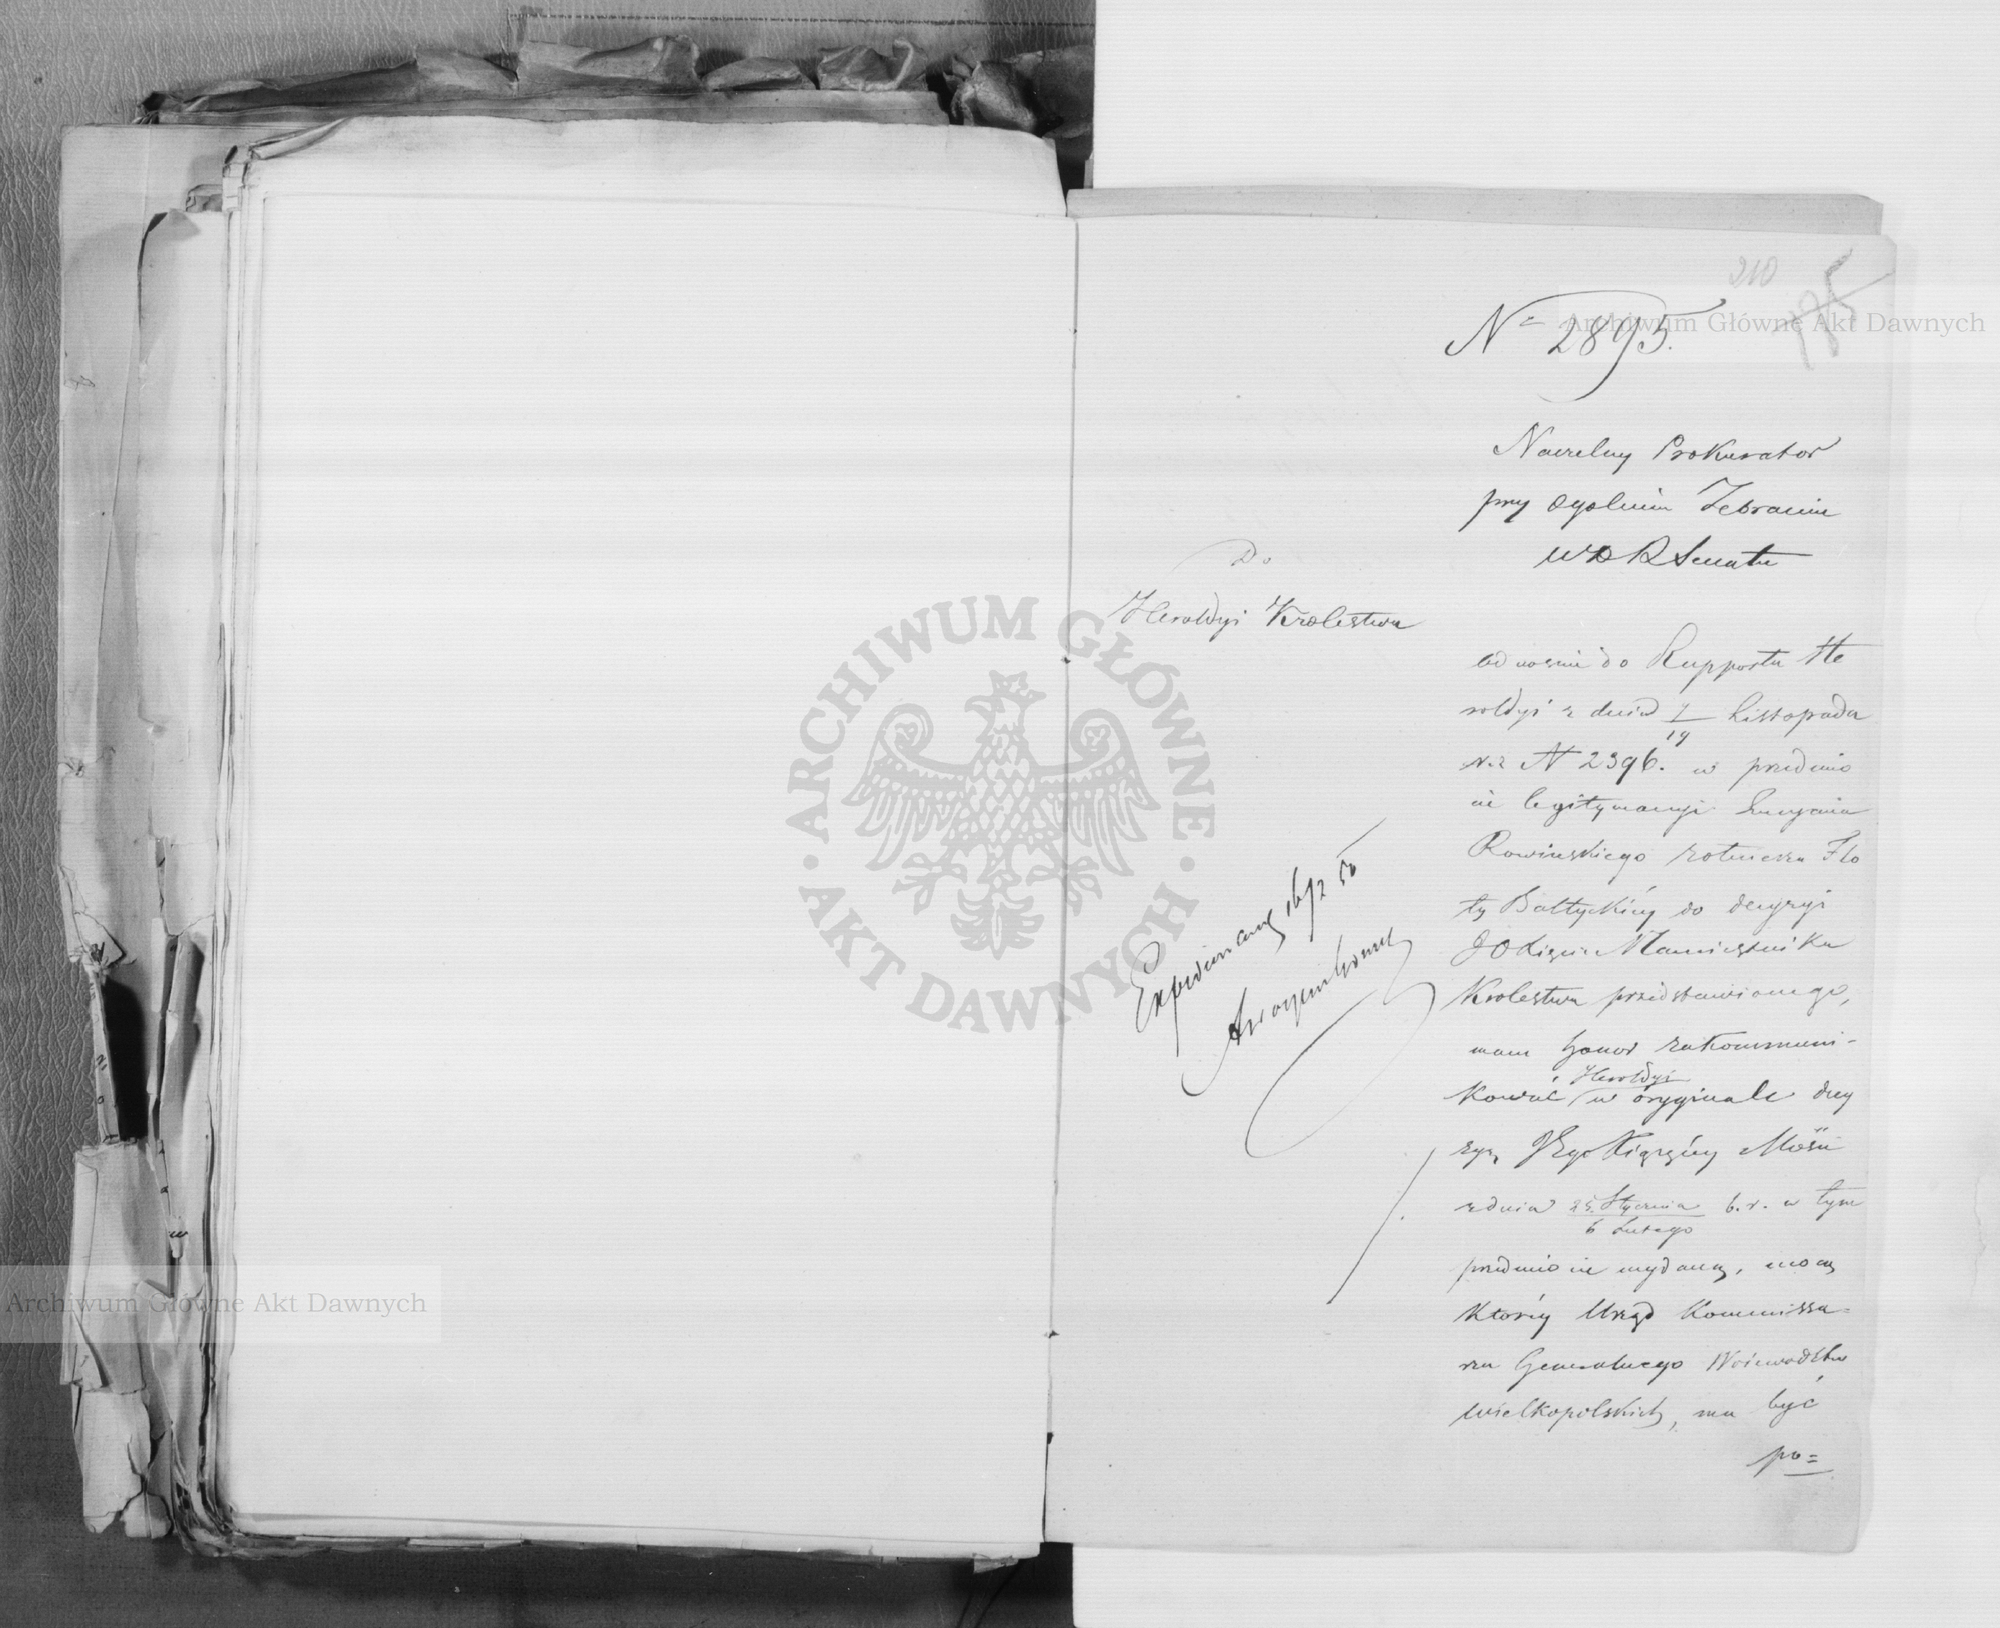 210
195
Nr 2895.
Naczelny Prokurator
przy Ogolnem Zebraniu
WDR Senatu
Do
Heroldyi Krolestwa
odnośnie do Rapportu He
roldyi z dnia 7/19 Listopada
N 2396. w przedmio
cie legitymacyi Lucyana
Rowińskiego rotmistrza Flo
ty Bałtyckiéy do decyzyi
JO Xięcia Namiestnika
Krolestwa przedstawionego,
mam honor zakommuni-
kować Heroldyi w oryginale decy
zyą JEgo Xiążęcéy Mości
z dnia 25 Stycznia / 6 Lutego b. r. w tym
przedmiocie wydaną, mocą
któréy Urząd Kommissa=
rza Generalnego Woiewództw
wielkopolskich, ma być
po=
Expediowany 16/2 50
Archiwum Główne Akt Dawnych
Archiwum Główne Akt Dawnych
ARCHIWUM GŁÓWNE AKT DAWNYCH